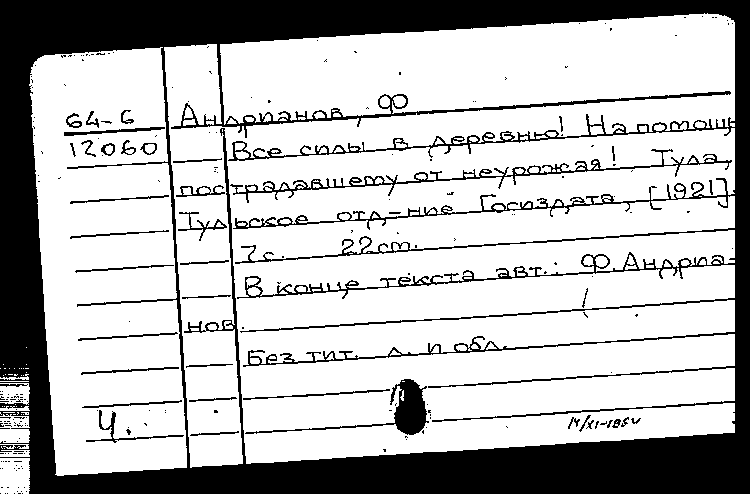 64-6 Андрианов, Ф
12060 Все силы в деревню! На помощь
пострадавшему от неурожая! Тула,
Тульское отд-ние Госиздата, [1921].
7с. 22см.
В конце текста авт.: Ф. Андриа-
нов.
Без тит. л. и обл.
Ч.